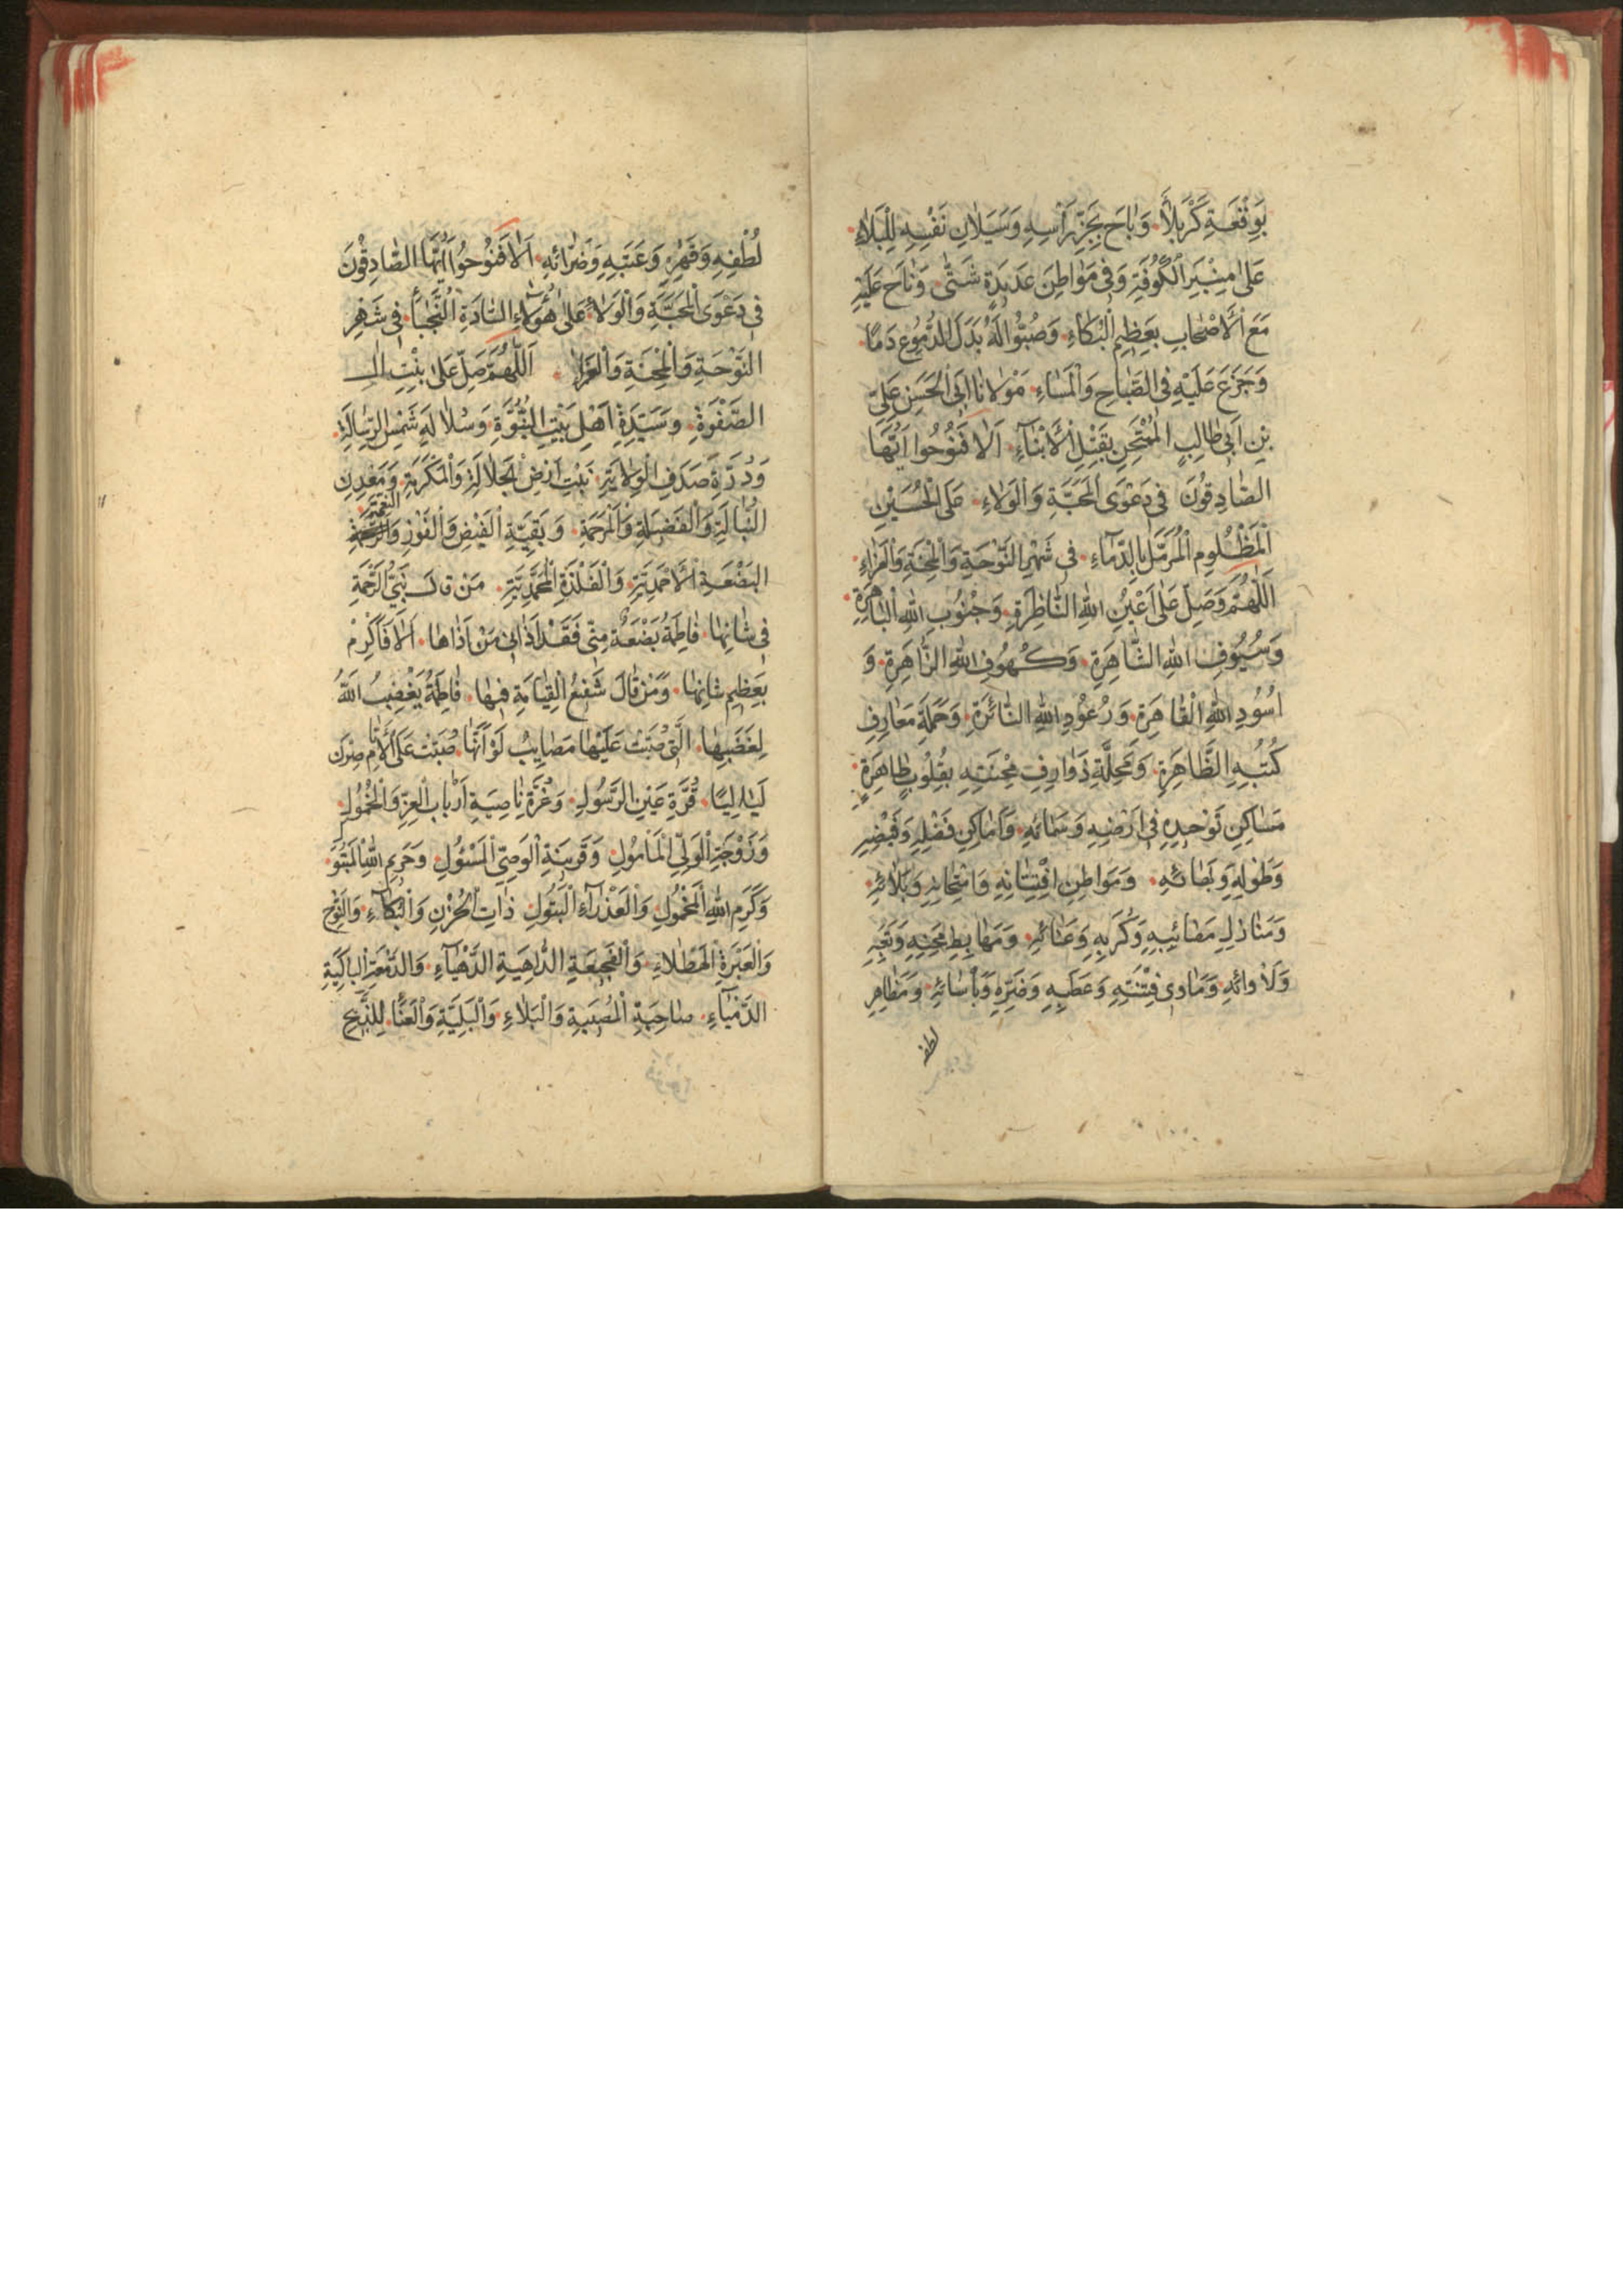 بِوَقْعَةِ كَرْبَلَاءَ وَبَاحَ بِجَزِّ رَأْسِهِ وَسَيَلَانِ نَفْسِهِ لِلْبَلَاءِ
عَلَىٰ مِنْبَرِ الْكُوفَةِ وَفِي مَوَاطِنَ عَدِيدَةٍ شَتّٰى وَنَاحَ عَلَيْهِ
مَعَ الْأَصْحَابِ بِعَظِيمِ الْبُكَاءِ وَصُبُّوا لَهُ بَدَلَ الدُّمُوعِ دَمًا
وَجَزِعَ عَلَيْهِ فِي الصَّبَاحِ وَالْمَسَاءِ مَوْلَانَا أَبِي الْحَسَنِ عَلِيِّ
بْنِ أَبِي طَالِبٍ الْمُمْتَحَنِ بِقَتْلِ الْأَبْنَاءِ أَلَا فَنُوحُوا أَيُّهَا
الصَّادِقُونَ فِي دَعْوَى الْمَحَبَّةِ وَالْوَلَاءِ عَلَى الْحُسَيْنِ
الْمَظْلُومِ الْمُرَمَّلِ بِالدِّمَاءِ فِي شَهْرِ النَّوْحَةِ وَالْمِحْنَةِ وَالْعَزَاءِ
اَللّٰهُمَّ وَصَلِّ عَلَىٰ أَعْيُنِ اللهِ النَّاظِرَةِ وَجُنُوبِ اللهِ الْبَاهِرَةِ
وَسُيُوفِ اللهِ الشَّاهِرَةِ وَكُهُوفِ اللهِ الزَّاهِرَةِ وَ
أُسُودِ اللهِ الْقَاهِرَةِ وَرُعُودِ اللهِ الثَّائِرَةِ وَحَمَلَةِ مَعَارِفِ
كُتُبِهِ الظَّاهِرَةِ وَمَحِلَّةِ ذَوَارِفِ مِحْنَتِهِ بِقُلُوبٍ طَاهِرَةٍ
مَسَاكِنِ تَوْحِيدِهِ فِي أَرْضِهِ وَسَمَائِهِ وَأَمَاكِنِ فَضْلِهِ وَفَيْضِهِ
وَطَوْلِهِ وَبَهَائِهِ وَمَوَاطِنِ افْتِتَانِهِ وَامْتِحَانِهِ وَبَلَائِهِ
وَمَنَازِلِ مَصَائِبِهِ وَكُرَبِهِ وَعَنَائِهِ وَمَهَابِطِ مِحَنِهِ وَتَعَبِهِ
وَلَأْوَائِهِ وَمَاوٰى فِتْنَتِهِ وَعَطَبِهِ وَضَرِّهِ وَبَأْسَائِهِ وَمَظَاهِرِ
لطفه
لُطْفِهِ وَقَهْرِهِ وَعَتَبِهِ وَضَرَّائِهِ أَلَا فَنُوحُوا أَيُّهَا الصَّادِقُونَ
فِي دَعْوَى الْمَحَبَّةِ وَالْوَلَاءِ عَلىٰ هٰؤُلَاءِ السَّادَةِ النُّجَبَاءِ فِي شَهْرِ
النَّوْحَةِ وَالْمِحْنَةِ وَالْعَزَاءِ اَللّٰهُمَّ صَلِّ عَلىٰ بِنْتِ الـ
الصَّفْوَةِ وَسَيِّدَةِ أَهْلِ بَيْتِ النُّبُوَّةِ وَسُلَالَةِ شَمْسِ الرِّسَالَةِ
وَدُرَّةِ صَدَفِ الْوِلَايَةِ نَبْتِ أَرْضِ الْجَلَالَةِ وَالْمَكْرَمَةِ وَمَعْدِنِ
النَّبَالَةِ وَالْفَضِيلَةِ وَالْمَرْحَمَةِ وَبَقِيَّةِ الْفَيْضِ وَالْفَوْزِ وَالنِّعْمَةِ
الْبَضْعَةِ الْأَحْمَدِيَّةِ وَالْفَلْذَةِ الْمُحَمَّدِيَّةِ مَنْ قَالَ نَبِيُّ الرَّحْمَةِ
فِي شَانِهَا فَاطِمَةُ بَضْعَةٌ مِنِّي فَقَدْ آذَانِي مَنْ آذَاهَا أَلَا فَأَكْرِمْ
بِعَظِيمِ شَانِهَا وَمَنْ قَالَ شَفِيعُ الْقِيَامَةِ فِيهَا فَاطِمَةُ يَغْضِبُ اللهُ
لِغَضَبِهَا الَّتِي صُبَّتْ عَلَيْهَا مَصَايِبُ لَوْ أَنَّهَا صُبَّتْ عَلَى الْأَيَّامِ صِرْنَ
لَيَالِيًا قُرَّةِ عَيْنِ الرَّسُولِ وَغُرَّةِ نَاصِيَةِ أَرْبَابِ الْعِزِّ وَالْخُمُولِ
وَزَوْجَةِ الْوَلِيِّ الْمَأْمُولِ وَقَرِينَةِ الْوَصِيِّ الْمَسْئُولِ وَحَرَمِ اللهِ
وَكَرَمِ اللهِ الْمَحْمُولِ وَالْعَذْرَاءِ الْبَتُولِ ذَاتِ الْحُزْنِ وَالْبُكَاءِ وَالنَّوْحِ
وَالْعَبْرَةِ الْهَطْلَاءِ وَالْفَجِيعَةِ الدَّاهِيَةِ الدَّهْيَاءِ وَالدَّمْعَةِ الْبَاكِيَةِ
الدَّمْيَاءِ صَاحِبَةِ الْمُصِيبَةِ وَالْبَلَاءِ وَالْبَلِيَّةِ وَالْعَنَاءِ